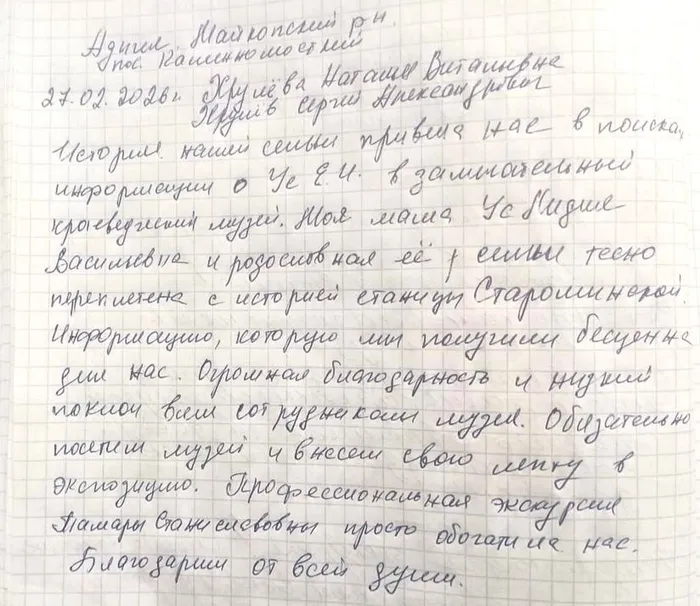 Адигея Майкопский р-н.
пос. Каменномостский
27.02.2026г. Хрулёва Наталия Витальевна
Хрулёв Сергей Александрович
История нашей семьи привела нас в поиска,
информации о Ус Е.И. в замечательный
краеведческий музей. Моя мама Ус Лидия
Васильевна и родословная её семьи тесно
переплетена с историей станицы Староминской.
Информацию, которую мы получили бесценна
для нас. Огромная благодарность и низкий
поклон всем сотрудникам музея. Обязательно
посетим музей и внесем свою лепту в
экспозицию. Профессиональная экскурсия
Тамары Станиславовны просто обогатила нас.
Благодарим от всей души.